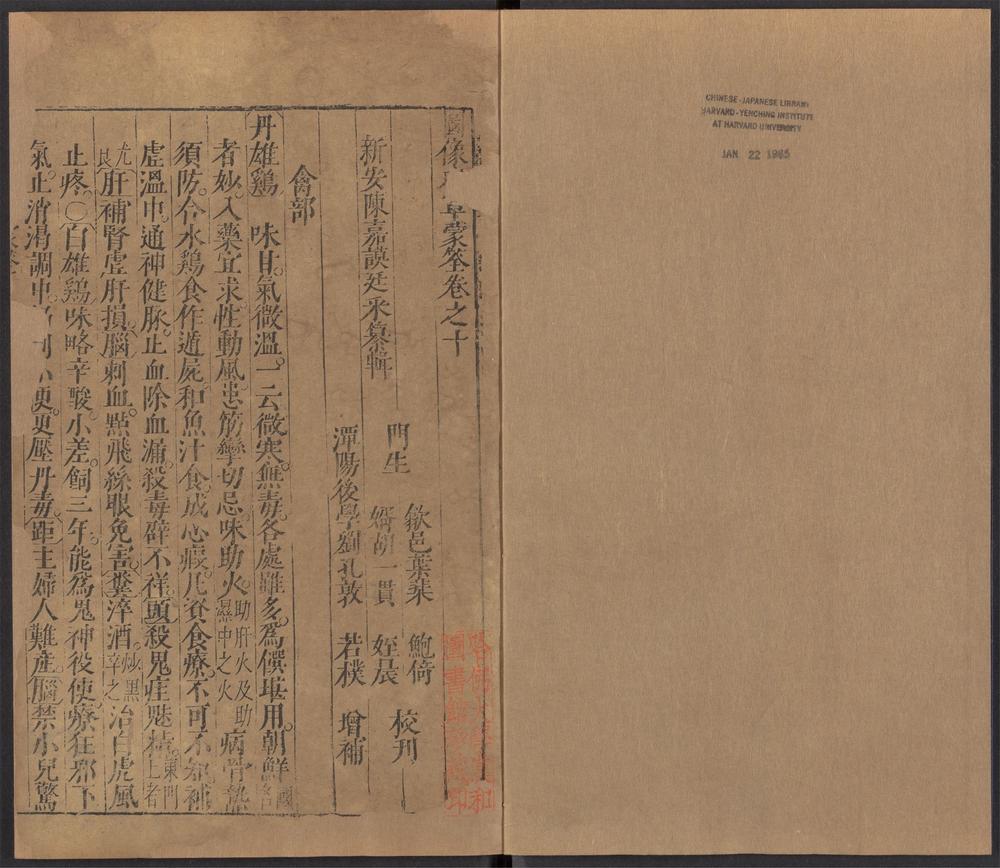 CHINESE-JAPANESE LIBRARY
HARVARD-YENCHING INSTITUTE
AT HARVARD UNIVERSITY
JAN 22 1965
圖像本草蒙筌卷之十
新安陳嘉謨廷采纂輯
門生
歙邑葉棐 鮑倚
婿胡一貫 姪晨 校刊
潭陽後學劉孔敦 若樸 增補
禽部
丹雄鷄 味甘。氣微溫。一云微寒。無毒。各處雖多。為饌堪用。朝鮮國名
者妙。入藥宜求。性動風。患筋攣切忌。味助火。助肝火及助濕中之火病骨熱
須防。合水鷄食作遁屍。和魚汁食。成心瘕。凡資食療。不可不知。補
虛溫中。通神健脉。止血除血漏。殺毒辟不祥。頭殺鬼疰魅精。東門上者
尤良肝補腎虛肝損。腦刺血。點飛絲眼免害。糞淬酒。炒黑淬之治白虎風
止疼。○白雄鷄味略辛酸。小差。飼三年。能為鬼神役使。療狂邪下
氣。止消渴調中。小便更壓丹毒。距主婦人難產。腦禁小兒驚